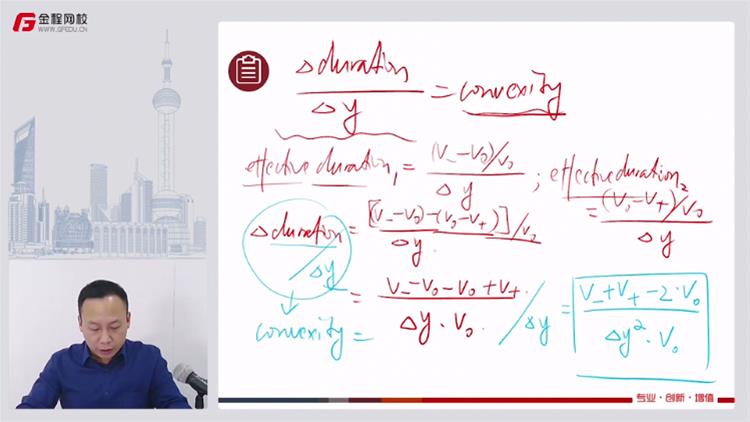 金程网校
WWW.GFEDU.CN
Δduration / Δy = convexity
effective duration₁ = (V₋-V₀)/V₀ / Δy ; effective duration₂ = (V₀-V₊)/V₀ / Δy
Δduration / Δy = [(V₋-V₀)-(V₀-V₊)]/V₀ / Δy
= V₋-V₀-V₀+V₊ / Δy·V₀ / Δy = V₋+V₊-2·V₀ / Δy²·V₀
convexity =
专业·创新·增值